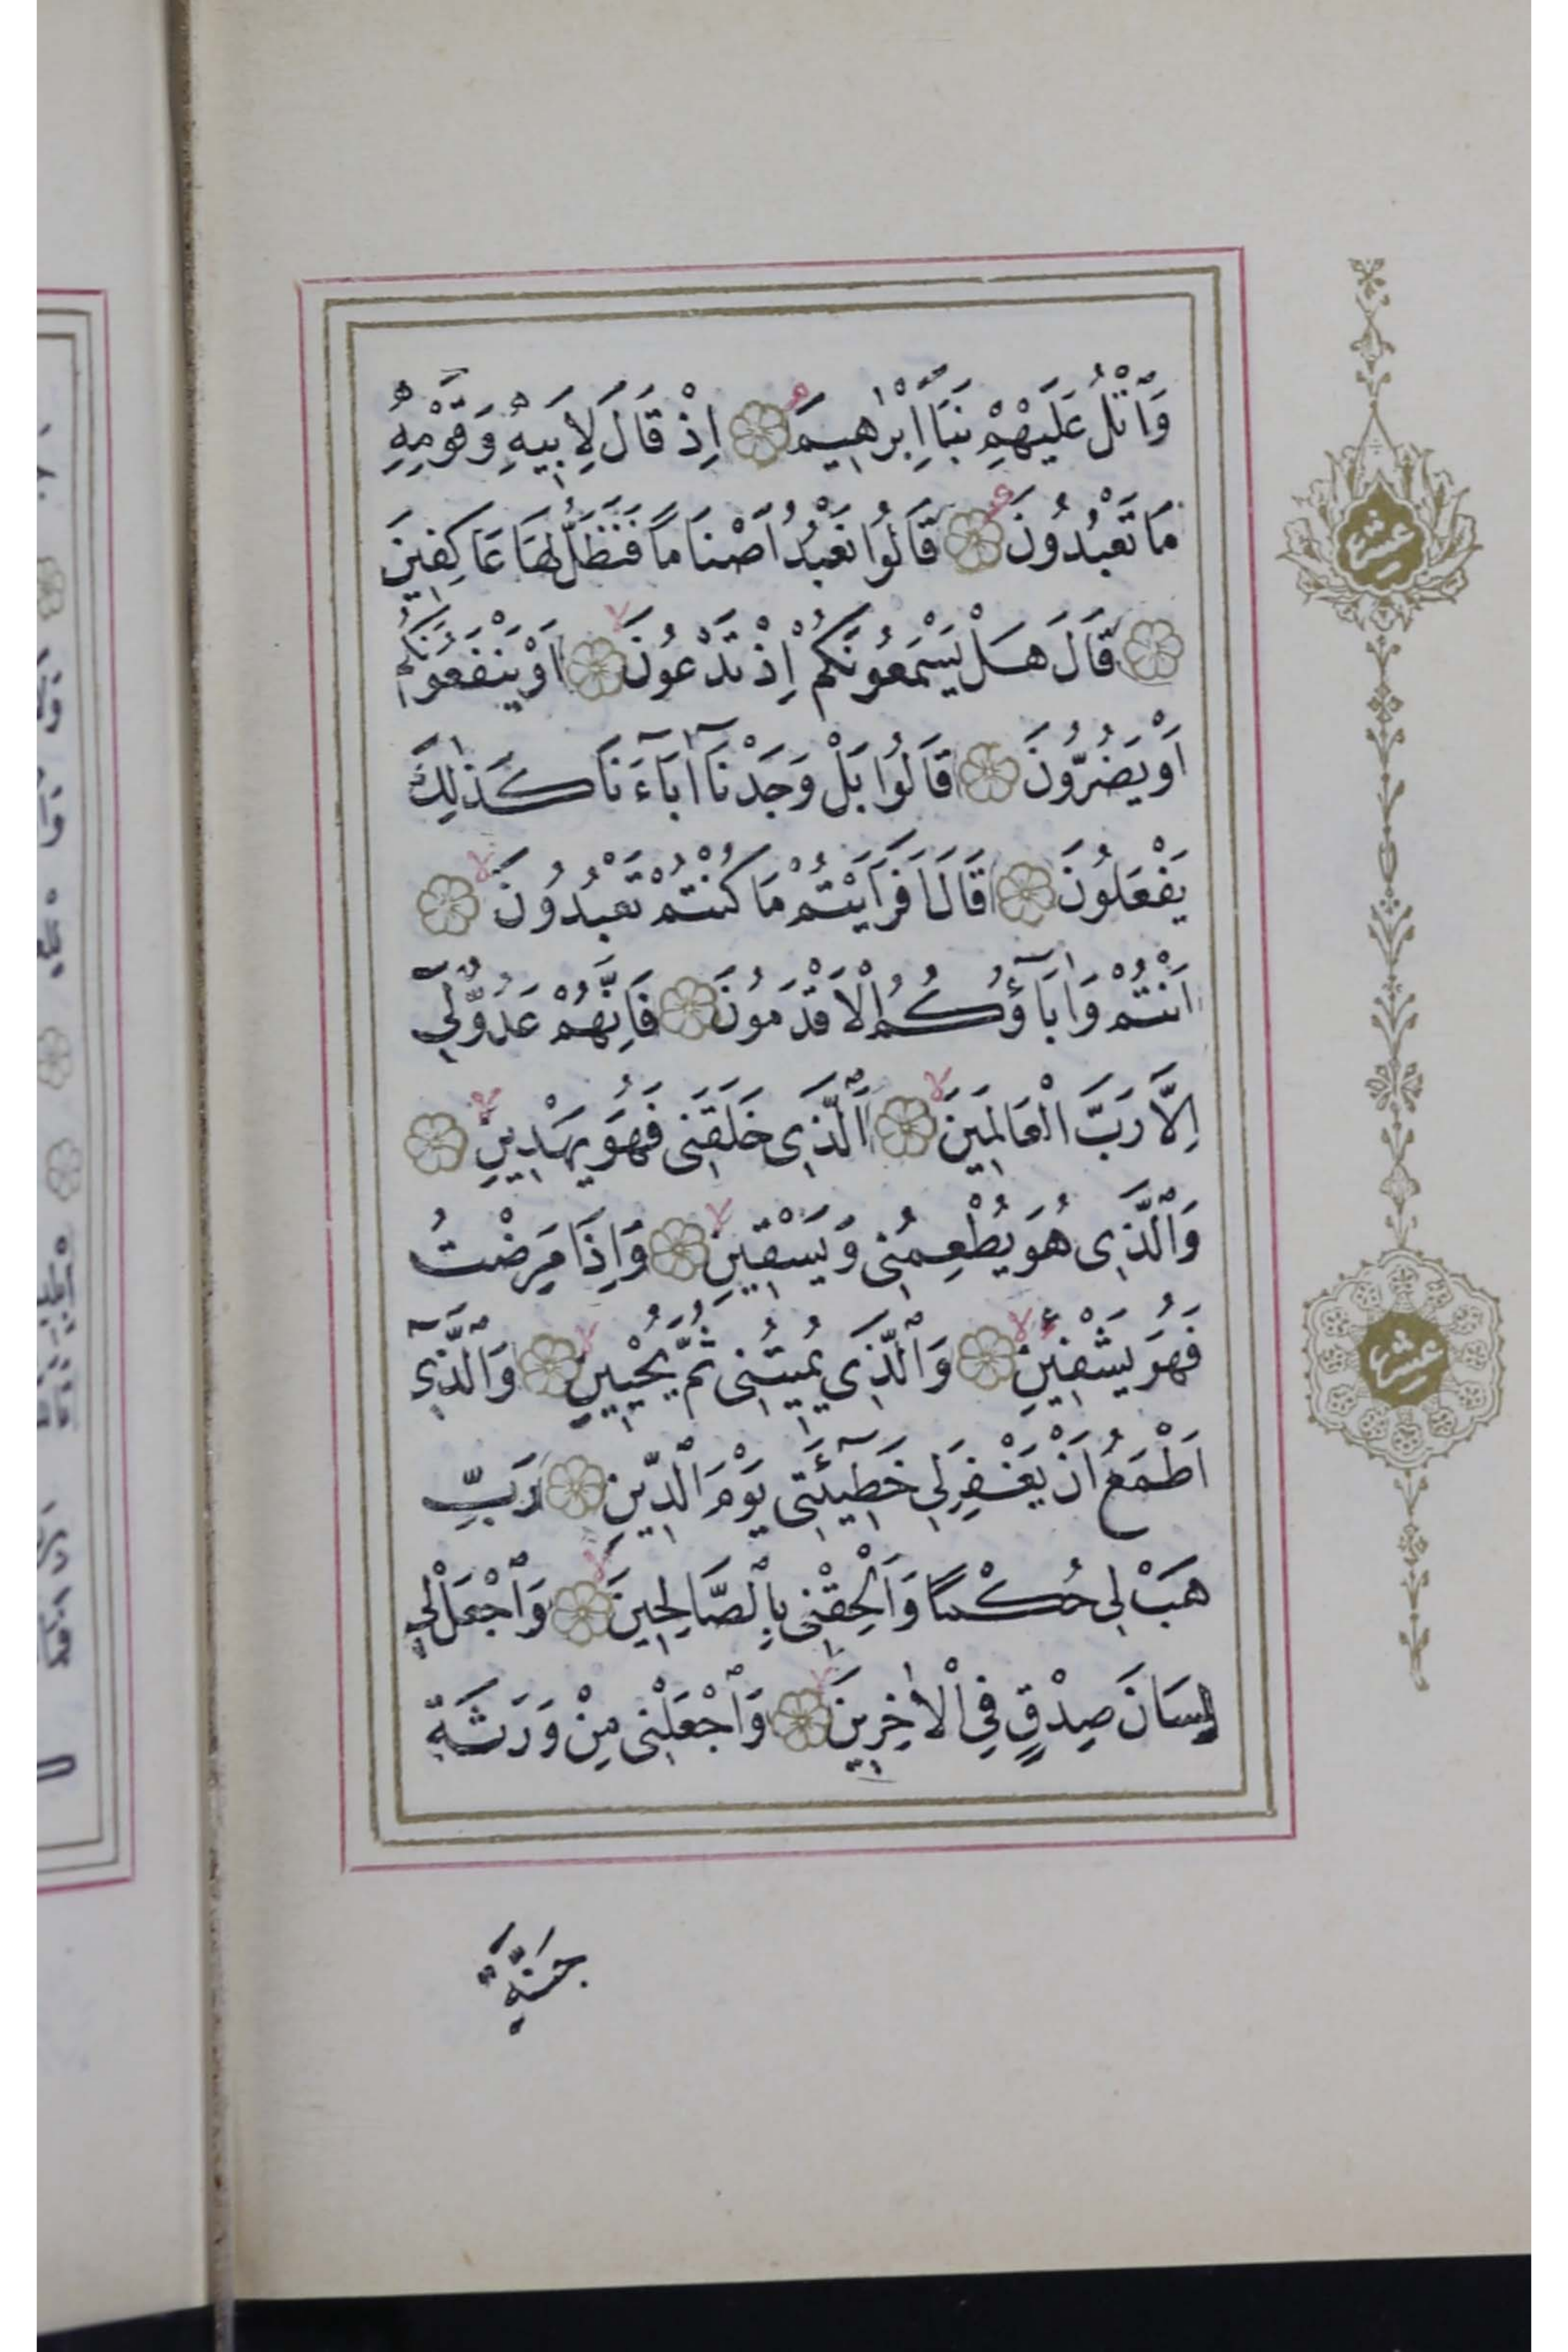 وَاتْلُ عَلَيْهِمْ نَبَاَ اِبْرٰهِيمَ ۞ اِذْ قَالَ لِاَبِيهِ وَقَوْمِهِ
مَا تَعْبُدُونَ ۞ قَالُوا نَعْبُدُ اَصْنَامًا فَنَظَلُّ لَهَا عَاكِفِينَ
۞ قَالَ هَلْ يَسْمَعُونَكُمْ اِذْ تَدْعُونَ ۞ اَوْ يَنْفَعُونَكُمْ
اَوْ يَضُرُّونَ ۞ قَالُوا بَلْ وَجَدْنَٓا اٰبَٓاءَنَا كَذٰلِكَ
يَفْعَلُونَ ۞ قَالَ اَفَرَاَيْتُمْ مَا كُنْتُمْ تَعْبُدُونَ ۞
اَنْتُمْ وَاٰبَٓاؤُكُمُ الْاَقْدَمُونَ ۞ فَاِنَّهُمْ عَدُوٌّ لِٓي
اِلَّا رَبَّ الْعَالَمِينَ ۞ اَلَّذِي خَلَقَنِي فَهُوَ يَهْدِينِ ۞
وَالَّذِي هُوَ يُطْعِمُنِي وَيَسْقِينِ ۞ وَاِذَا مَرِضْتُ
فَهُوَ يَشْفِينِ ۞ وَالَّذِي يُمِيتُنِي ثُمَّ يُحْيِينِ ۞ وَالَّذِٓي
اَطْمَعُ اَنْ يَغْفِرَ لِي خَطِٓيئَتِي يَوْمَ الدِّينِ ۞ رَبِّ
هَبْ لِي حُكْمًا وَاَلْحِقْنِي بِالصَّالِحِينَ ۞ وَاجْعَلْ لِي
لِسَانَ صِدْقٍ فِي الْاٰخِرِينَ ۞ وَاجْعَلْنِي مِنْ وَرَثَةِ
جَنَّةِ
عشر
عشر